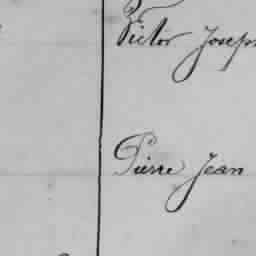 Victor Joseph
Pierre Jean